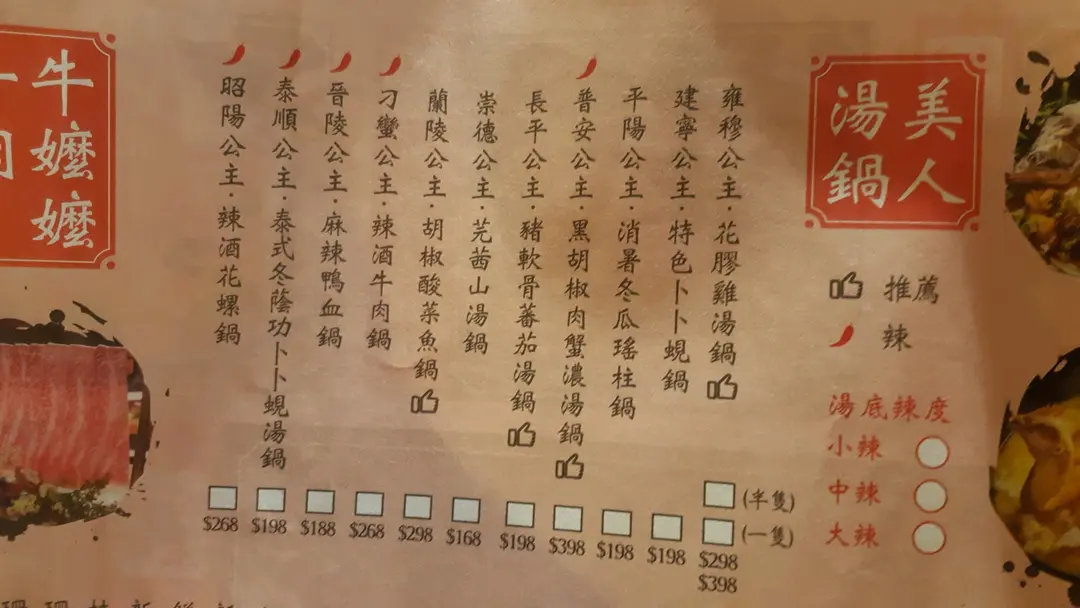 美人
湯鍋
推薦
辣
湯底辣度
小辣
中辣
大辣
雍穆公主·花膠雞湯鍋
(半隻)
(一隻)
$298
$398
建寧公主·特色卜卜蜆鍋
$198
平陽公主·消暑冬瓜瑤柱鍋
$198
普安公主·黑胡椒肉蟹濃湯鍋
$398
長平公主·豬軟骨蕃茄湯鍋
$198
崇德公主·芫茜山湯鍋
$168
蘭陵公主·胡椒酸菜魚鍋
$298
刁蠻公主·辣酒牛肉鍋
$268
晉陵公主·麻辣鴨血鍋
$188
泰順公主·泰式冬蔭功卜卜蜆湯鍋
$198
昭陽公主·辣酒花螺鍋
$268
牛嬤嬤